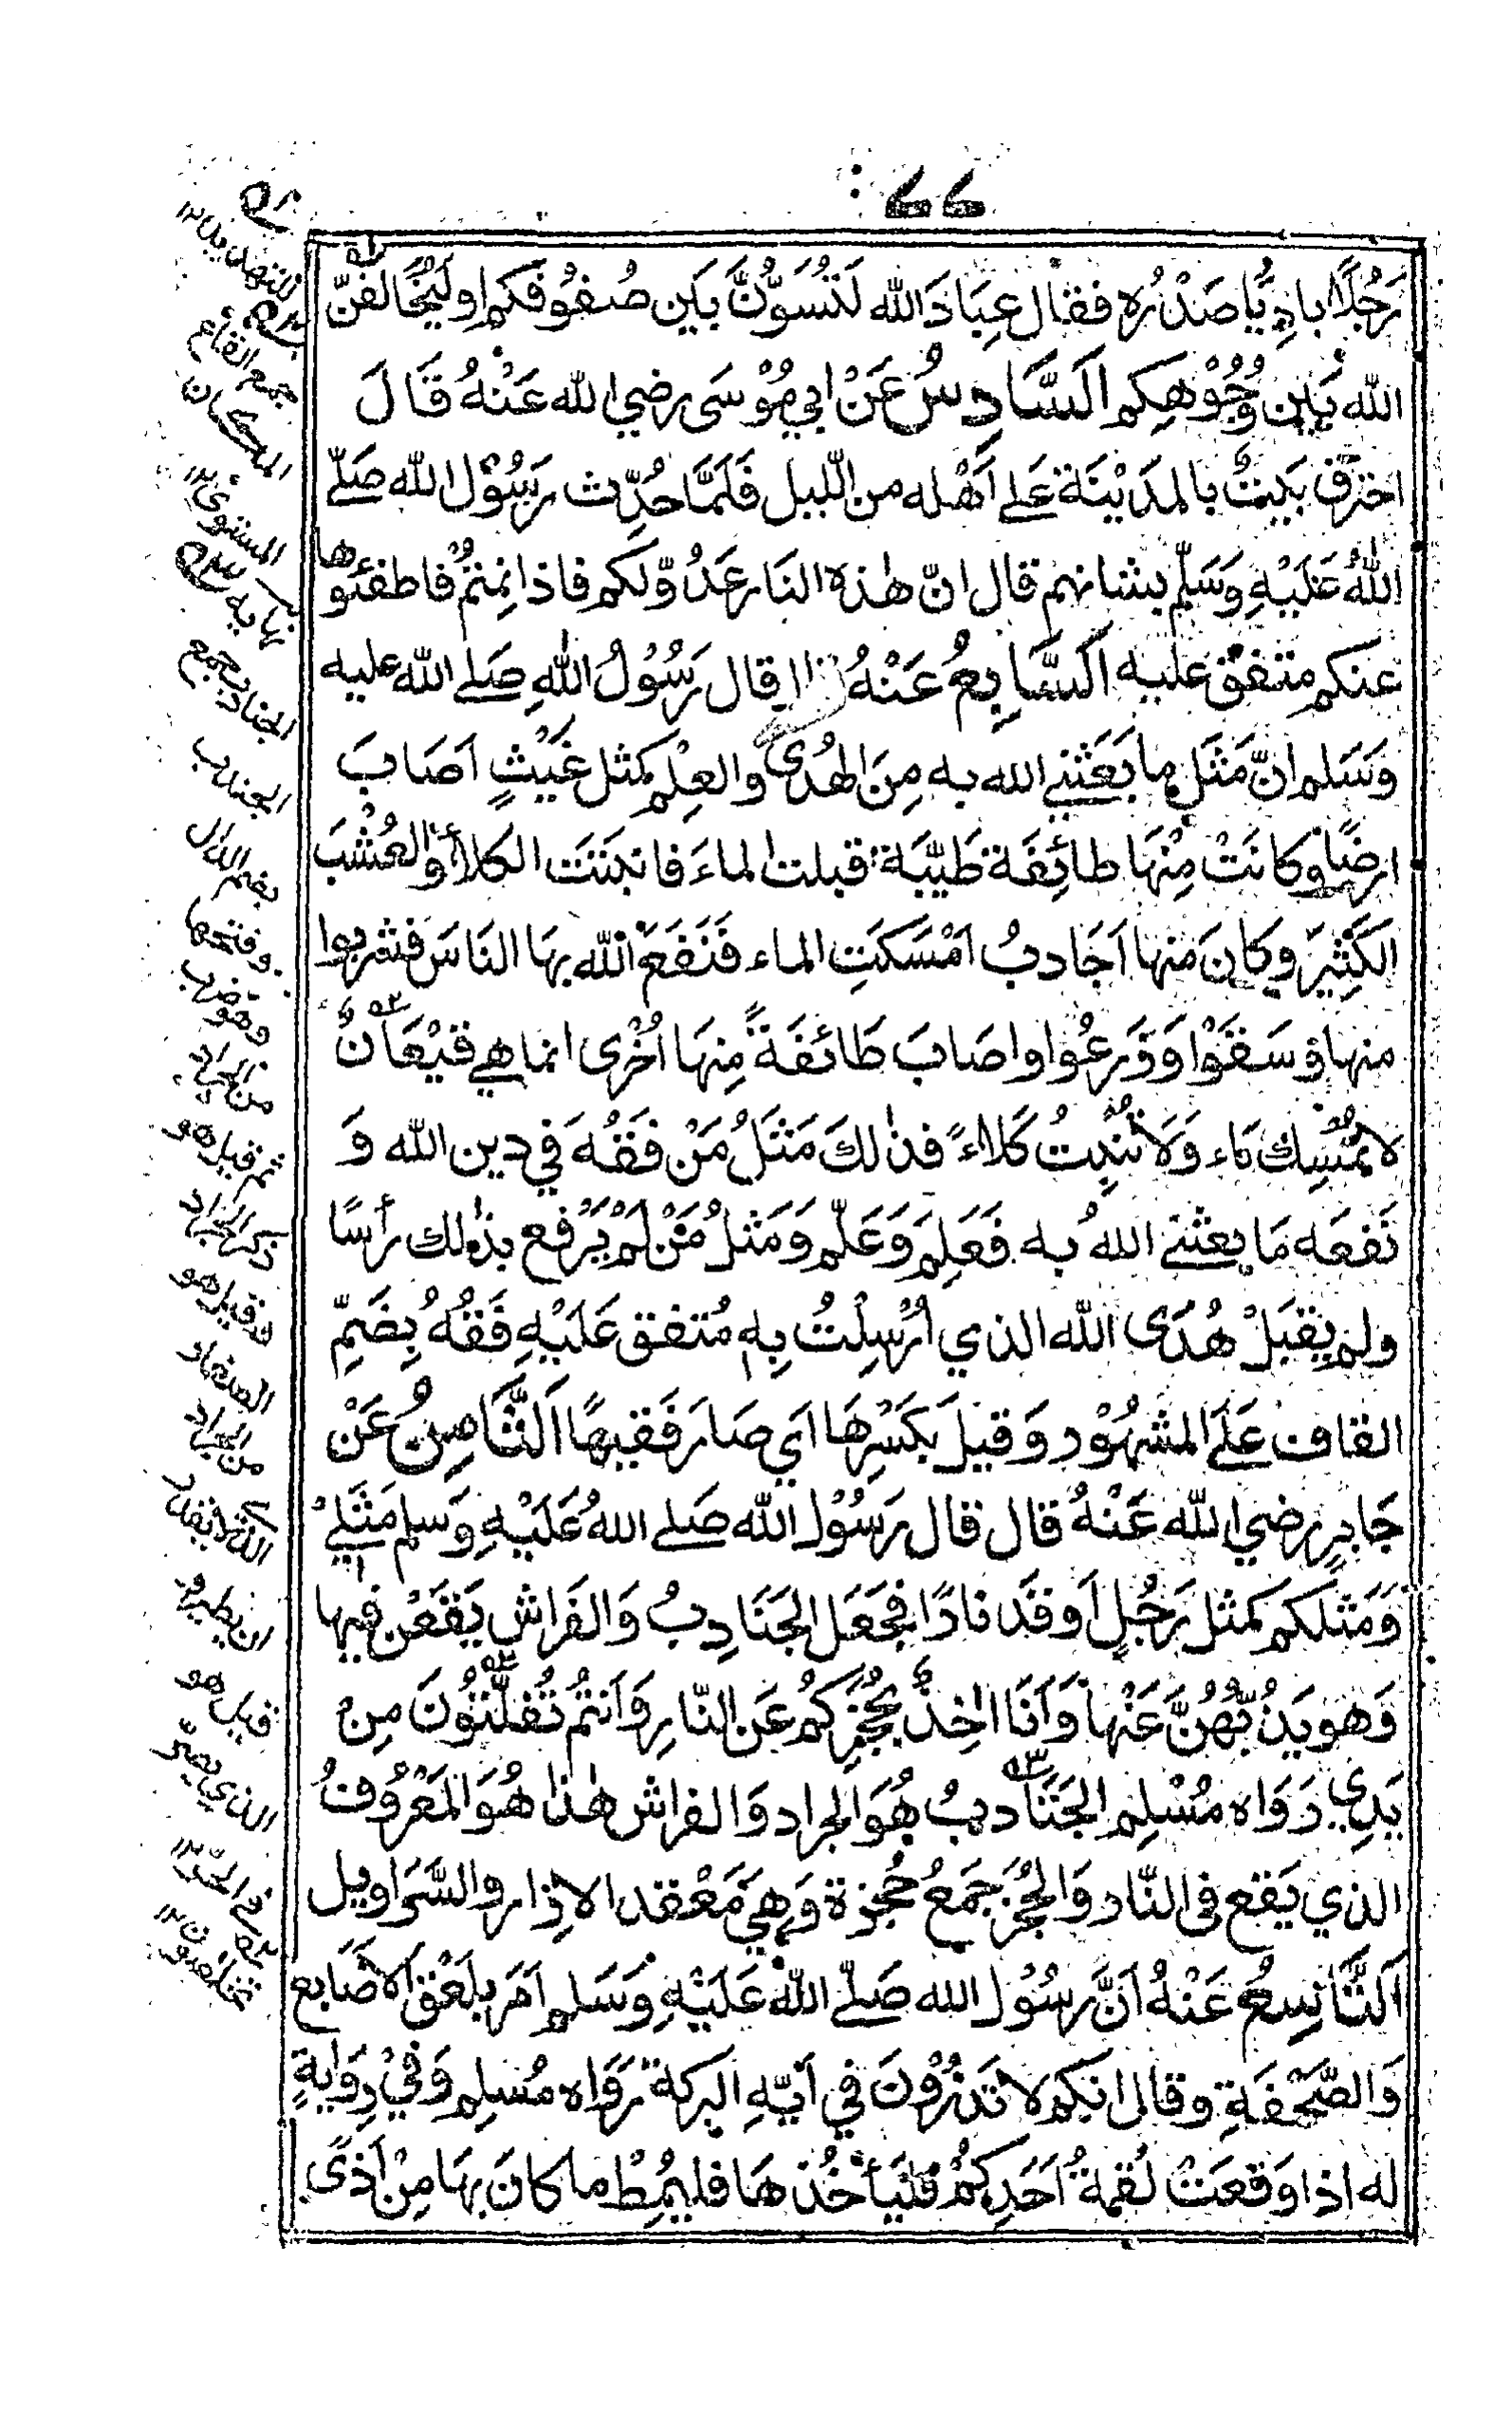 ٧٧
رَجُلًا بادِيًا صَدْرُه فقال عِبَادَ الله لَتُسَوُّنَّ بَين صُفُوفَكم اوليُخَالفَنّ
الله بَيْن وُجُوْهِكم اَلسَّادِسُ عَنْ ابي مُوْسَى رضي الله عَنْهُ قَالَ
احترق بَيتٌ بالمدَيْنَة عَلے اَهْله من اللّيل فَلَمَّا حُدِّث رَسُوْل الله صَلّے
اللهُ عَلَيْهِ وَسَلّم بشانهم قال انّ هٰذه النَار عَدُوّلكم فاذا نِمتُمْ فاطفئوها
عنكم متفق عليه اَلسَّابِعُ عَنْهُ قال رَسُوْلُ اللّٰهِ صَلے الله عليه
وَسَلم انّ مَثَل ما بَعَثَنے الله به مِنَ الهُدٰى والعِلْم كمثل غَيْثٍ اَصَابَ
ارضًا وكانَتْ مِنْهَا طائِفَة طَيّبَة قبلت الماءَ فانبتَت الكلأ والعُشْبَ
الكَثِيْرَ وَكانَ مَنها اَجَادبُ اَمْسَكَتِ الماء فَنَفَعَ الله بهَا النَاسَ فشربوا
منها وَسَقَوْا وَزَرعُوا واصَابَ طَائفَةً مِنهَا اُخْرى انما هے قيْعَانٌ
لا تُمْسِك مَاء وَلَا تُنْبِتُ كَلاءً فذٰلكَ مَثَلُ مَنْ فَقُهَ في دين الله وَ
نَفعَه مَا بعثنے اللهُ به فَعَلِمَ وَعَلّم وَمَثلُ مَنْ لَمْ يَرْفع بذٰلك رأسًا
ولم يقبَلْ هُدَى الله الذي اُرْسِلْتُ بِه مُتفق عَلَيْهِ فَقُهُ بِضَمِّ
القاف عَلَے المشهُوْر وَقيلَ بكَسْرِهَا اي صَارَ فَقيهًا اَلثَّامِنُ عَنْ
جَابرٍ رضي الله عَنْهُ قال قال رَسُوْل الله صَلے اللهُ عَلَيْهِ وَسلم مَثَلِيْ
وَمَثلكم كمثل رَجُلٍ اَوقَد نارًا فجَعَل الجَنَادِبُ وَالفَراش يَقَعْن فيها
وَهو يَذُبُّهُنَّ عَنْهَا وَاَنَا اٰخِذٌ بحُجَزِكمُ عَن النّارِ وَاَنتمُ تُفَلّتوُنَ مِنْ
يَدِي رَوَاه مُسْلِم الجَنَادبُ هُوَ الجراد وَالفراش هٰذا هُوَ المَعْرُوفُ
الذي يَقع فى النّار وَالحُجَز جَمعُ حُجزة وَهِي مَعْقد الازار والسَّرَاويل
اَلتَّاسِعُ عَنْهُ اَنَّ رَسُوْل الله صَلّے اللهُ عَلَيْهِ وَسَلم اَمَر بلَعْق الاصَابع
وَالصَّحْفَةِ وقال انكم لا تَدرُوْنَ في اَيّهِ البركة رَوَاه مُسلِم وَفي رِوَايةٍ
له اذا وَقعَتْ لُقمةُ اَحَدِكمُ فليَأخُذهَا فليُمِطْ ما كانَ بهَا مِنْ اَذًى
للتهديد١٢
جمع القاع
المكان
المستوى١٢
نهايه
الجنادب جمع
الجندب
بضم الدال
وفتحها
وهو ضرب
من الجراد
ثم قيل هو
ذكر الجراد
وقيل هو
الصغار
من الجراد
ان يطير
قيل هو
الذي يصرّ
فى الحرّ١٢